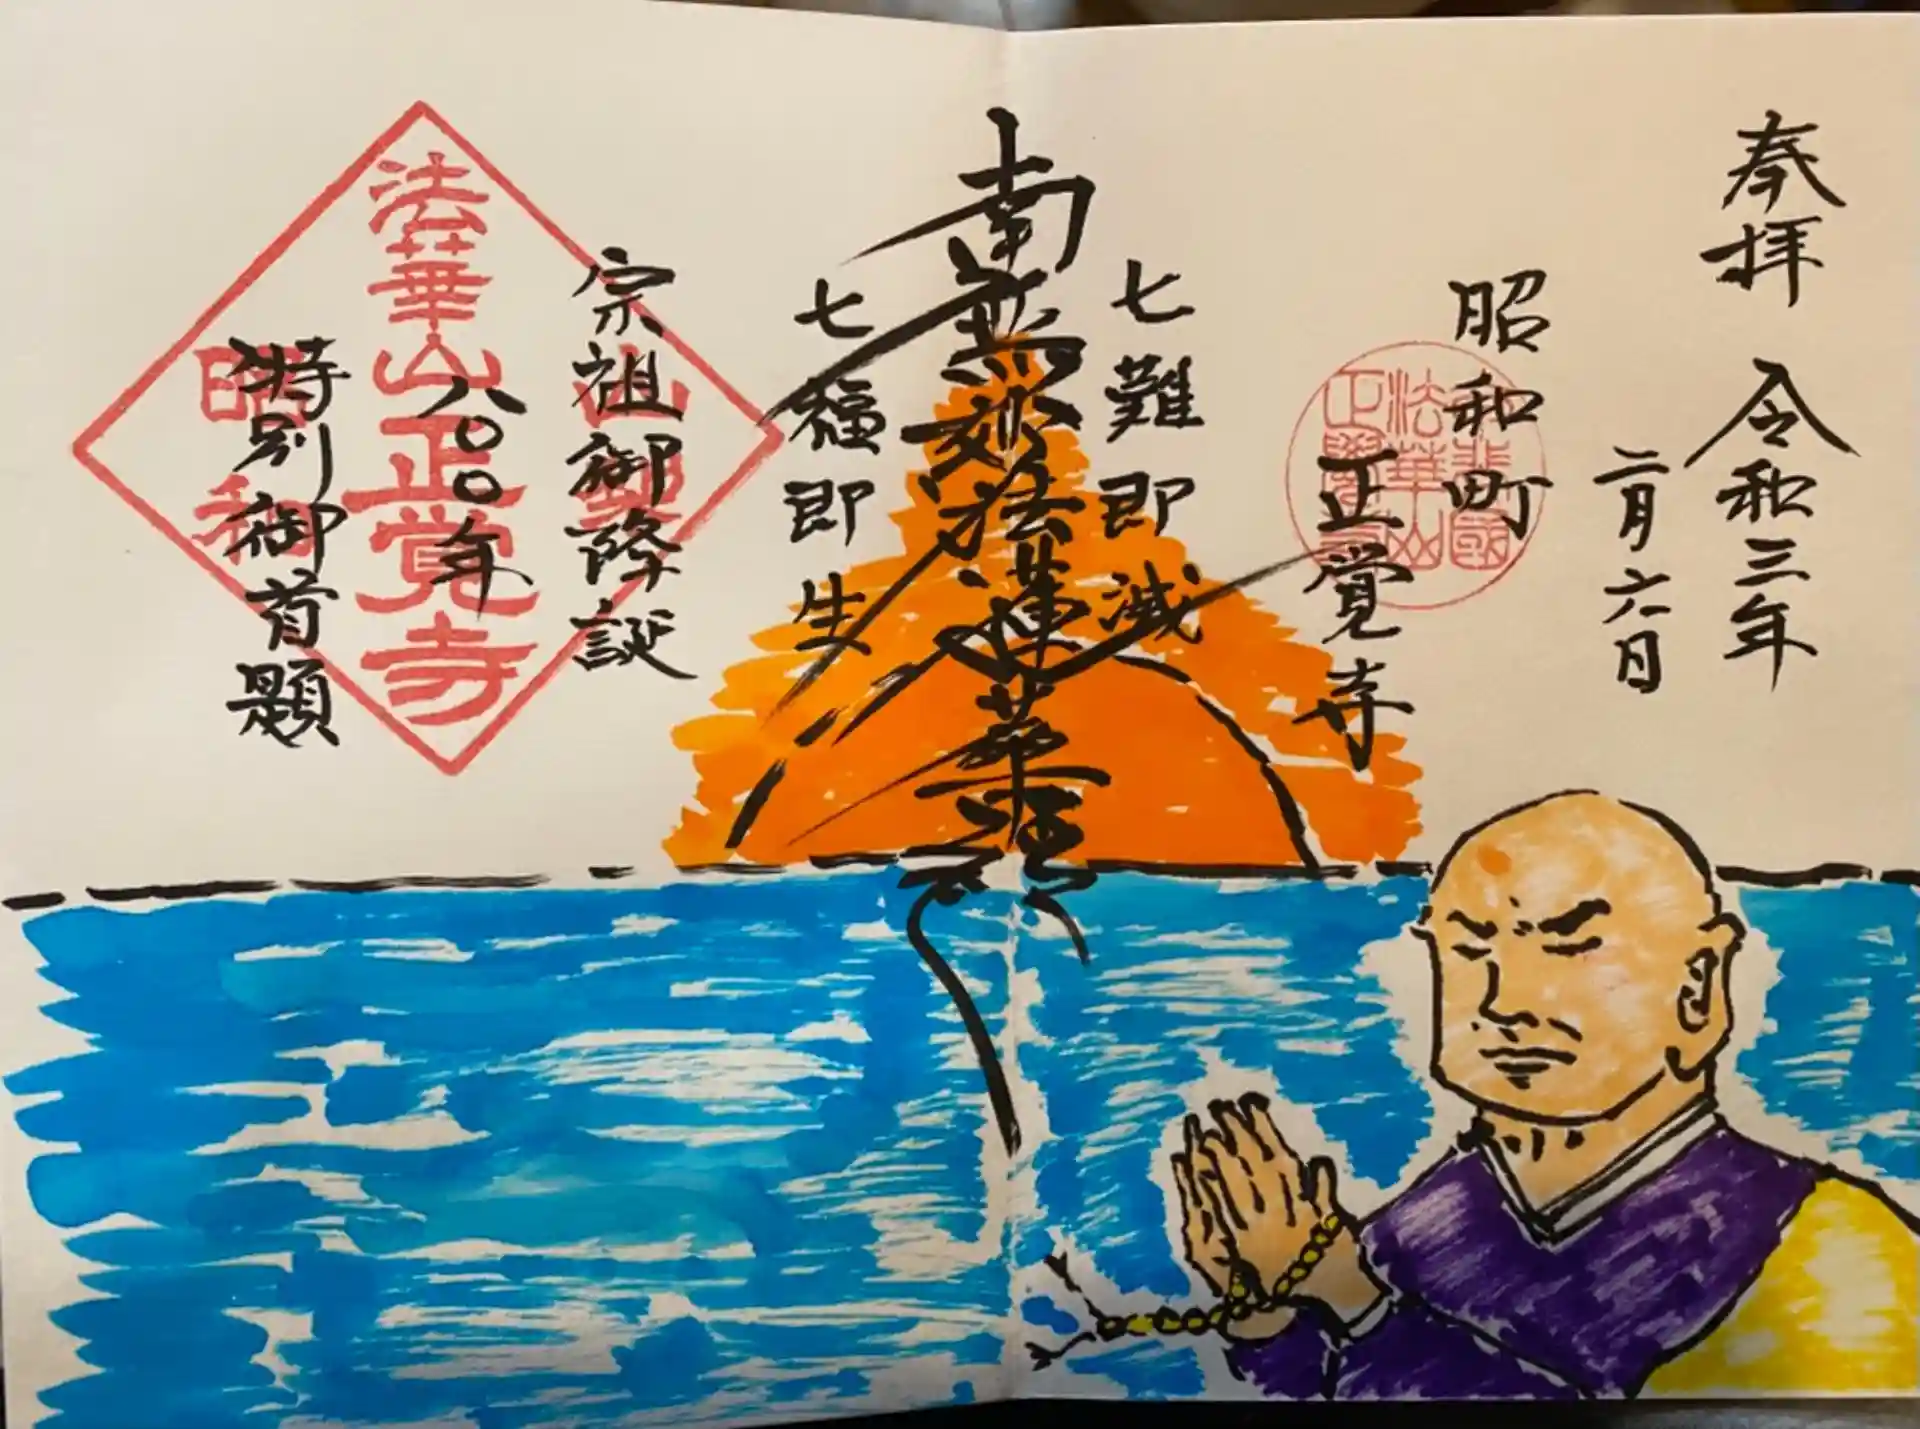 奉拝
令和三年
二月六日
昭和町
正覚寺
七難即滅
南無妙法蓮華経
七福即生
宗祖御降誕
八〇〇年
特別御首題
法華山
正覚寺
法華山正覚寺
山梨
昭和